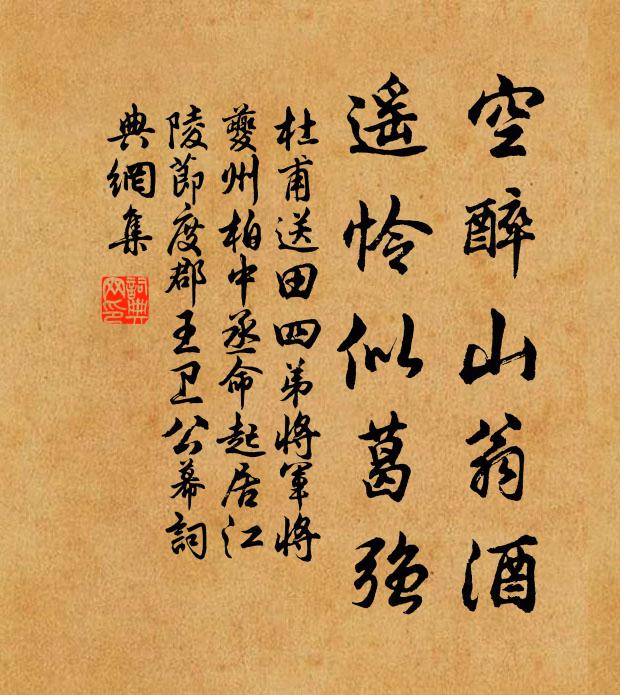 空醉山翁酒
遥怜似葛强
杜甫送田四弟将军将
夔州柏中丞命起居江
陵節度郡王卫公幕詞
典網集
詞典網印